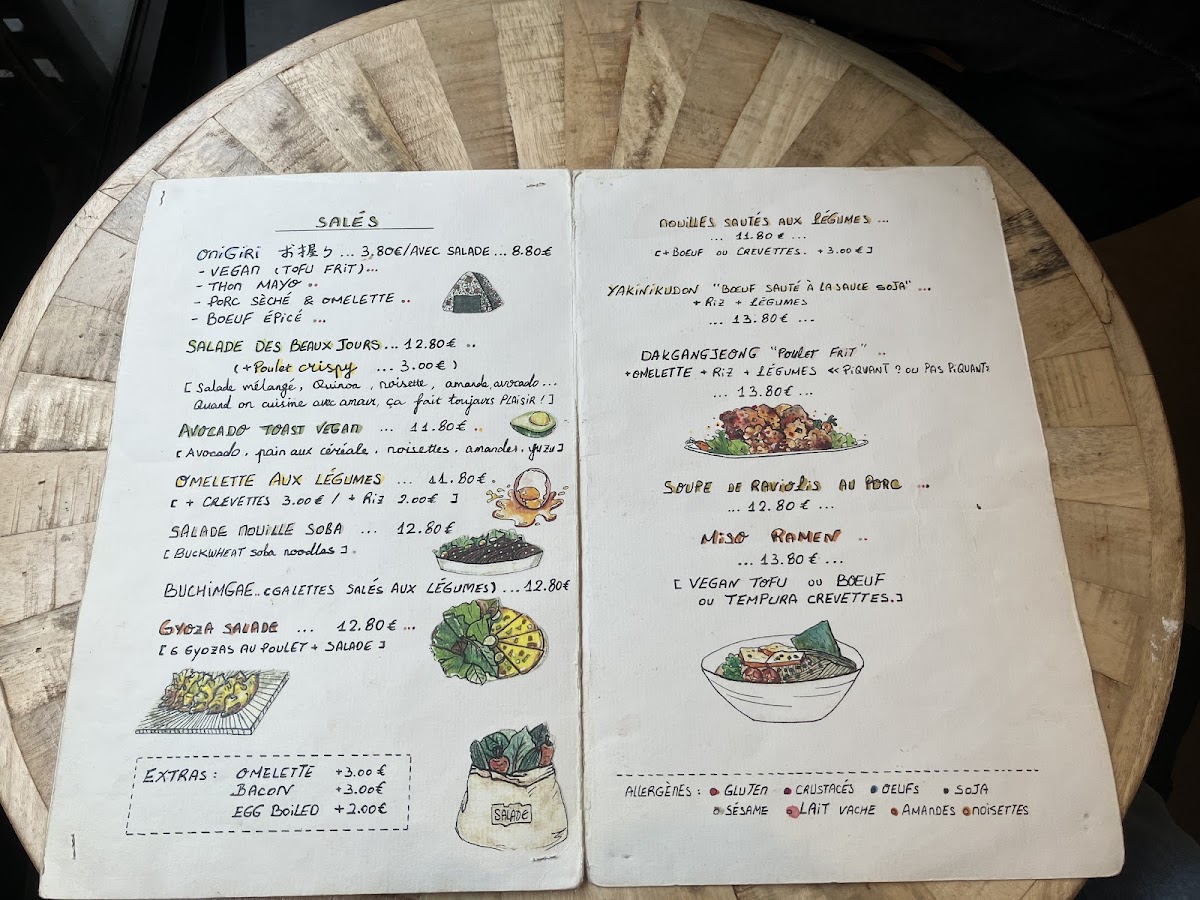 SALÉS
ONIGIRI お握り ... 3,80€/AVEC SALADE ... 8.80€
- VEGAN (TOFU FRIT)...
- THON MAYO ..
- PORC SÈCHÉ & OMELETTE ..
- BOEUF ÉPICÉ ...
SALADE DES BEAUX JOURS ... 12.80€ ..
(+ Poulet crispy ... 3.00€ )
[ Salade mélangé, Quinoa, noisette, amande, avocado ...
Quand on cuisine avec amour, ça fait toujours PLAISIR ! ]
AVOCADO TOAST VEGAN ... 11.80€ ..
[ Avocado, pain aux céréale, noisettes, amandes, yuzu ]
OMELETTE AUX LÉGUMES ... 11.80€.
[ + CREVETTES 3.00€ / + RIZ 2.00€ ]
SALADE NOUILLE SOBA ... 12.80€
[ BUCKWHEAT soba noodles ] .
BUCHIMGAE.. (GALETTES SALÉS AUX LÉGUMES) ... 12.80€
GYOZA SALADE ... 12.80€ ...
[ 6 GYOZAS AU POULET + SALADE ]
EXTRAS : OMELETTE +3.00€
BACON +3.00€
EGG BOILED +2.00€
SALADE
NOUILLES SAUTÉS AUX LÉGUMES ...
... 11.80€ ...
[ + BOEUF OU CREVETTES. +3.00€ ]
YAKINIKUDON "BOEUF SAUTÉ À LA SAUCE SOJA" ...
+ RIZ + LÉGUMES
... 13.80€ ...
DAKGANGJEONG "POULET FRIT" ..
+OMELETTE + RIZ + LÉGUMES << PIQUANT ? OU PAS PIQUANT>
... 13.80€ ...
SOUPE DE RAVIOLIS AU PORC ...
... 12.80€ ...
MISO RAMEN ..
... 13.80€ ...
[ VEGAN TOFU OU BOEUF
OU TEMPURA CREVETTES.]
ALLERGÈNES : GLUTEN CRUSTACÉS OEUFS SOJA
SÉSAME LAIT VACHE AMANDES NOISETTES